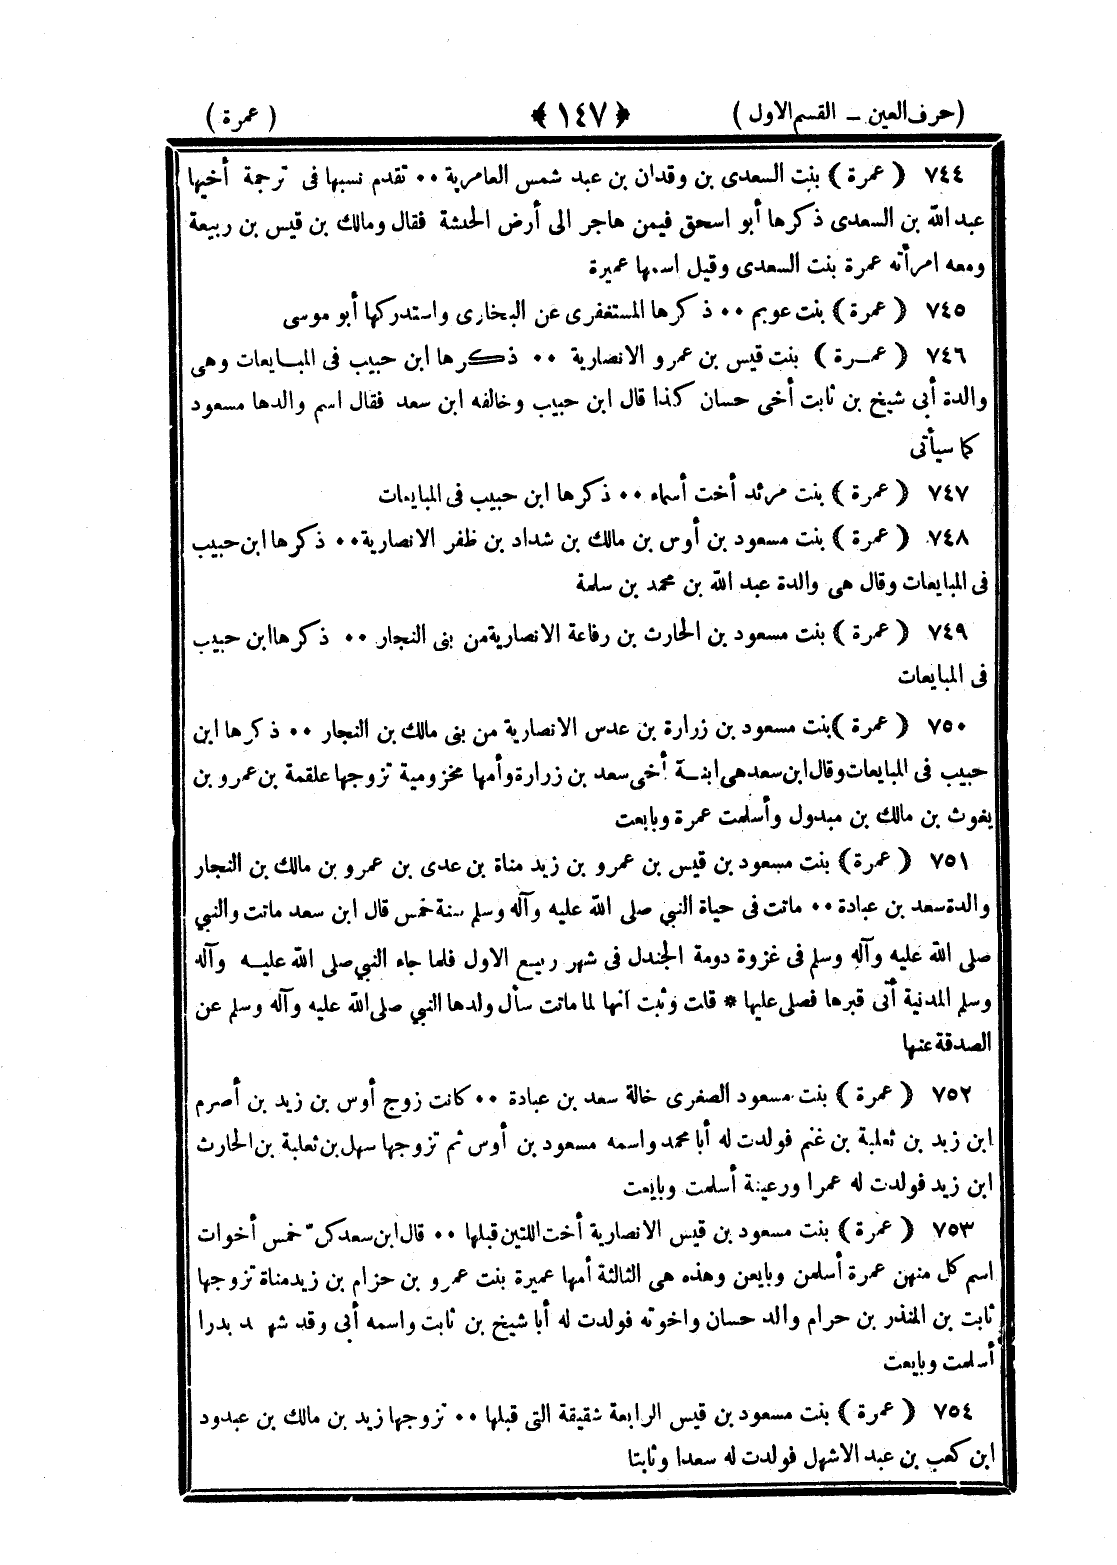 (حرف العين – القسم الاول) ﴿ ١٤٧ ﴾ (عمرة)
٧٤٤ (عمرة) بنت السعدى بن وقدان بن عبد شمس العامرية ٠٠ تقدم نسبها فى ترجمة أخيها
عبد الله بن السعدى ذكرها أبو اسحق فيمن هاجر الى أرض الحبشة فقال ومالك بن قيس بن ربيعة
ومعه امرأته عمرة بنت السعدى وقيل اسمها عميرة
٧٤٥ (عمرة) بنت عويم ٠٠ ذكرها المستغفرى عن البخارى واستدركها أبو موسى
٧٤٦ (عمرة) بنت قيس بن عمرو الانصارية ٠٠ ذكرها ابن حبيب فى المبايعات وهى
والدة أبى شيخ بن ثابت أخى حسان كذا قال ابن حبيب وخالفه ابن سعد فقال اسم والدها مسعود
كما سيأتى
٧٤٧ (عمرة) بنت مرثد أخت أسماء ٠٠ ذكرها ابن حبيب فى المبايعات
٧٤٨ (عمرة) بنت مسعود بن أوس بن مالك بن شداد بن ظفر الانصارية ٠٠ ذكرها ابن حبيب
فى المبايعات وقال هى والدة عبد الله بن محمد بن سلمة
٧٤٩ (عمرة) بنت مسعود بن الحارث بن رفاعة الانصارية من بنى النجار ٠٠ ذكرها ابن حبيب
فى المبايعات
٧٥٠ (عمرة) بنت مسعود بن زرارة بن عدس الانصارية من بنى مالك بن النجار ٠٠ ذكرها ابن
حبيب فى المبايعات وقال ابن سعد هى ابنة أخى سعد بن زرارة وأمها مخزومية تزوجها علقمة بن عمرو بن
يغوث بن مالك بن مبدول وأسلمت عمرة وبايعت
٧٥١ (عمرة) بنت مسعود بن قيس بن عمرو بن زيد مناة بن عدى بن عمرو بن مالك بن النجار
والدة سعد بن عبادة ٠٠ ماتت فى حياة النبي صلى الله عليه وآله وسلم سنة خمس قال ابن سعد ماتت والنبي
صلى الله عليه وآله وسلم فى غزوة دومة الجندل فى شهر ربيع الاول فلما جاء النبي صلى الله عليه وآله
وسلم المدنية أتى قبرها فصلى عليها * قلت وثبت انها لما ماتت سأل ولدها النبي صلى الله عليه وآله وسلم عن
الصدقة عنها
٧٥٢ (عمرة) بنت مسعود الصغرى خالة سعد بن عبادة ٠٠ كانت زوج أوس بن زيد بن أصرم
ابن زيد بن ثعلبة بن غنم فولدت له أبا محمد واسمه مسعود بن أوس ثم تزوجها سهل بن ثعلبة بن الحارث
ابن زيد فولدت له عمرا ورعينة أسلمت وبايعت
٧٥٣ (عمرة) بنت مسعود بن قيس الانصارية أخت اللتين قبلها ٠٠ قال ابن سعد كنّ خمس أخوات
اسم كل منهن عمرة أسلمن وبايعن وهذه هى الثالثة أمها عميرة بنت عمرو بن حزام بن زيد مناة تزوجها
ثابت بن المنذر بن حرام والد حسان واخوته فولدت له أبا شيخ بن ثابت واسمه أبى وقد شهد بدرا
أسلمت وبايعت
٧٥٤ (عمرة) بنت مسعود بن قيس الرابعة شقيقة التى قبلها ٠٠ تزوجها زيد بن مالك بن عبدود
ابن كعب بن عبد الاشهل فولدت له سعدا وثابتا